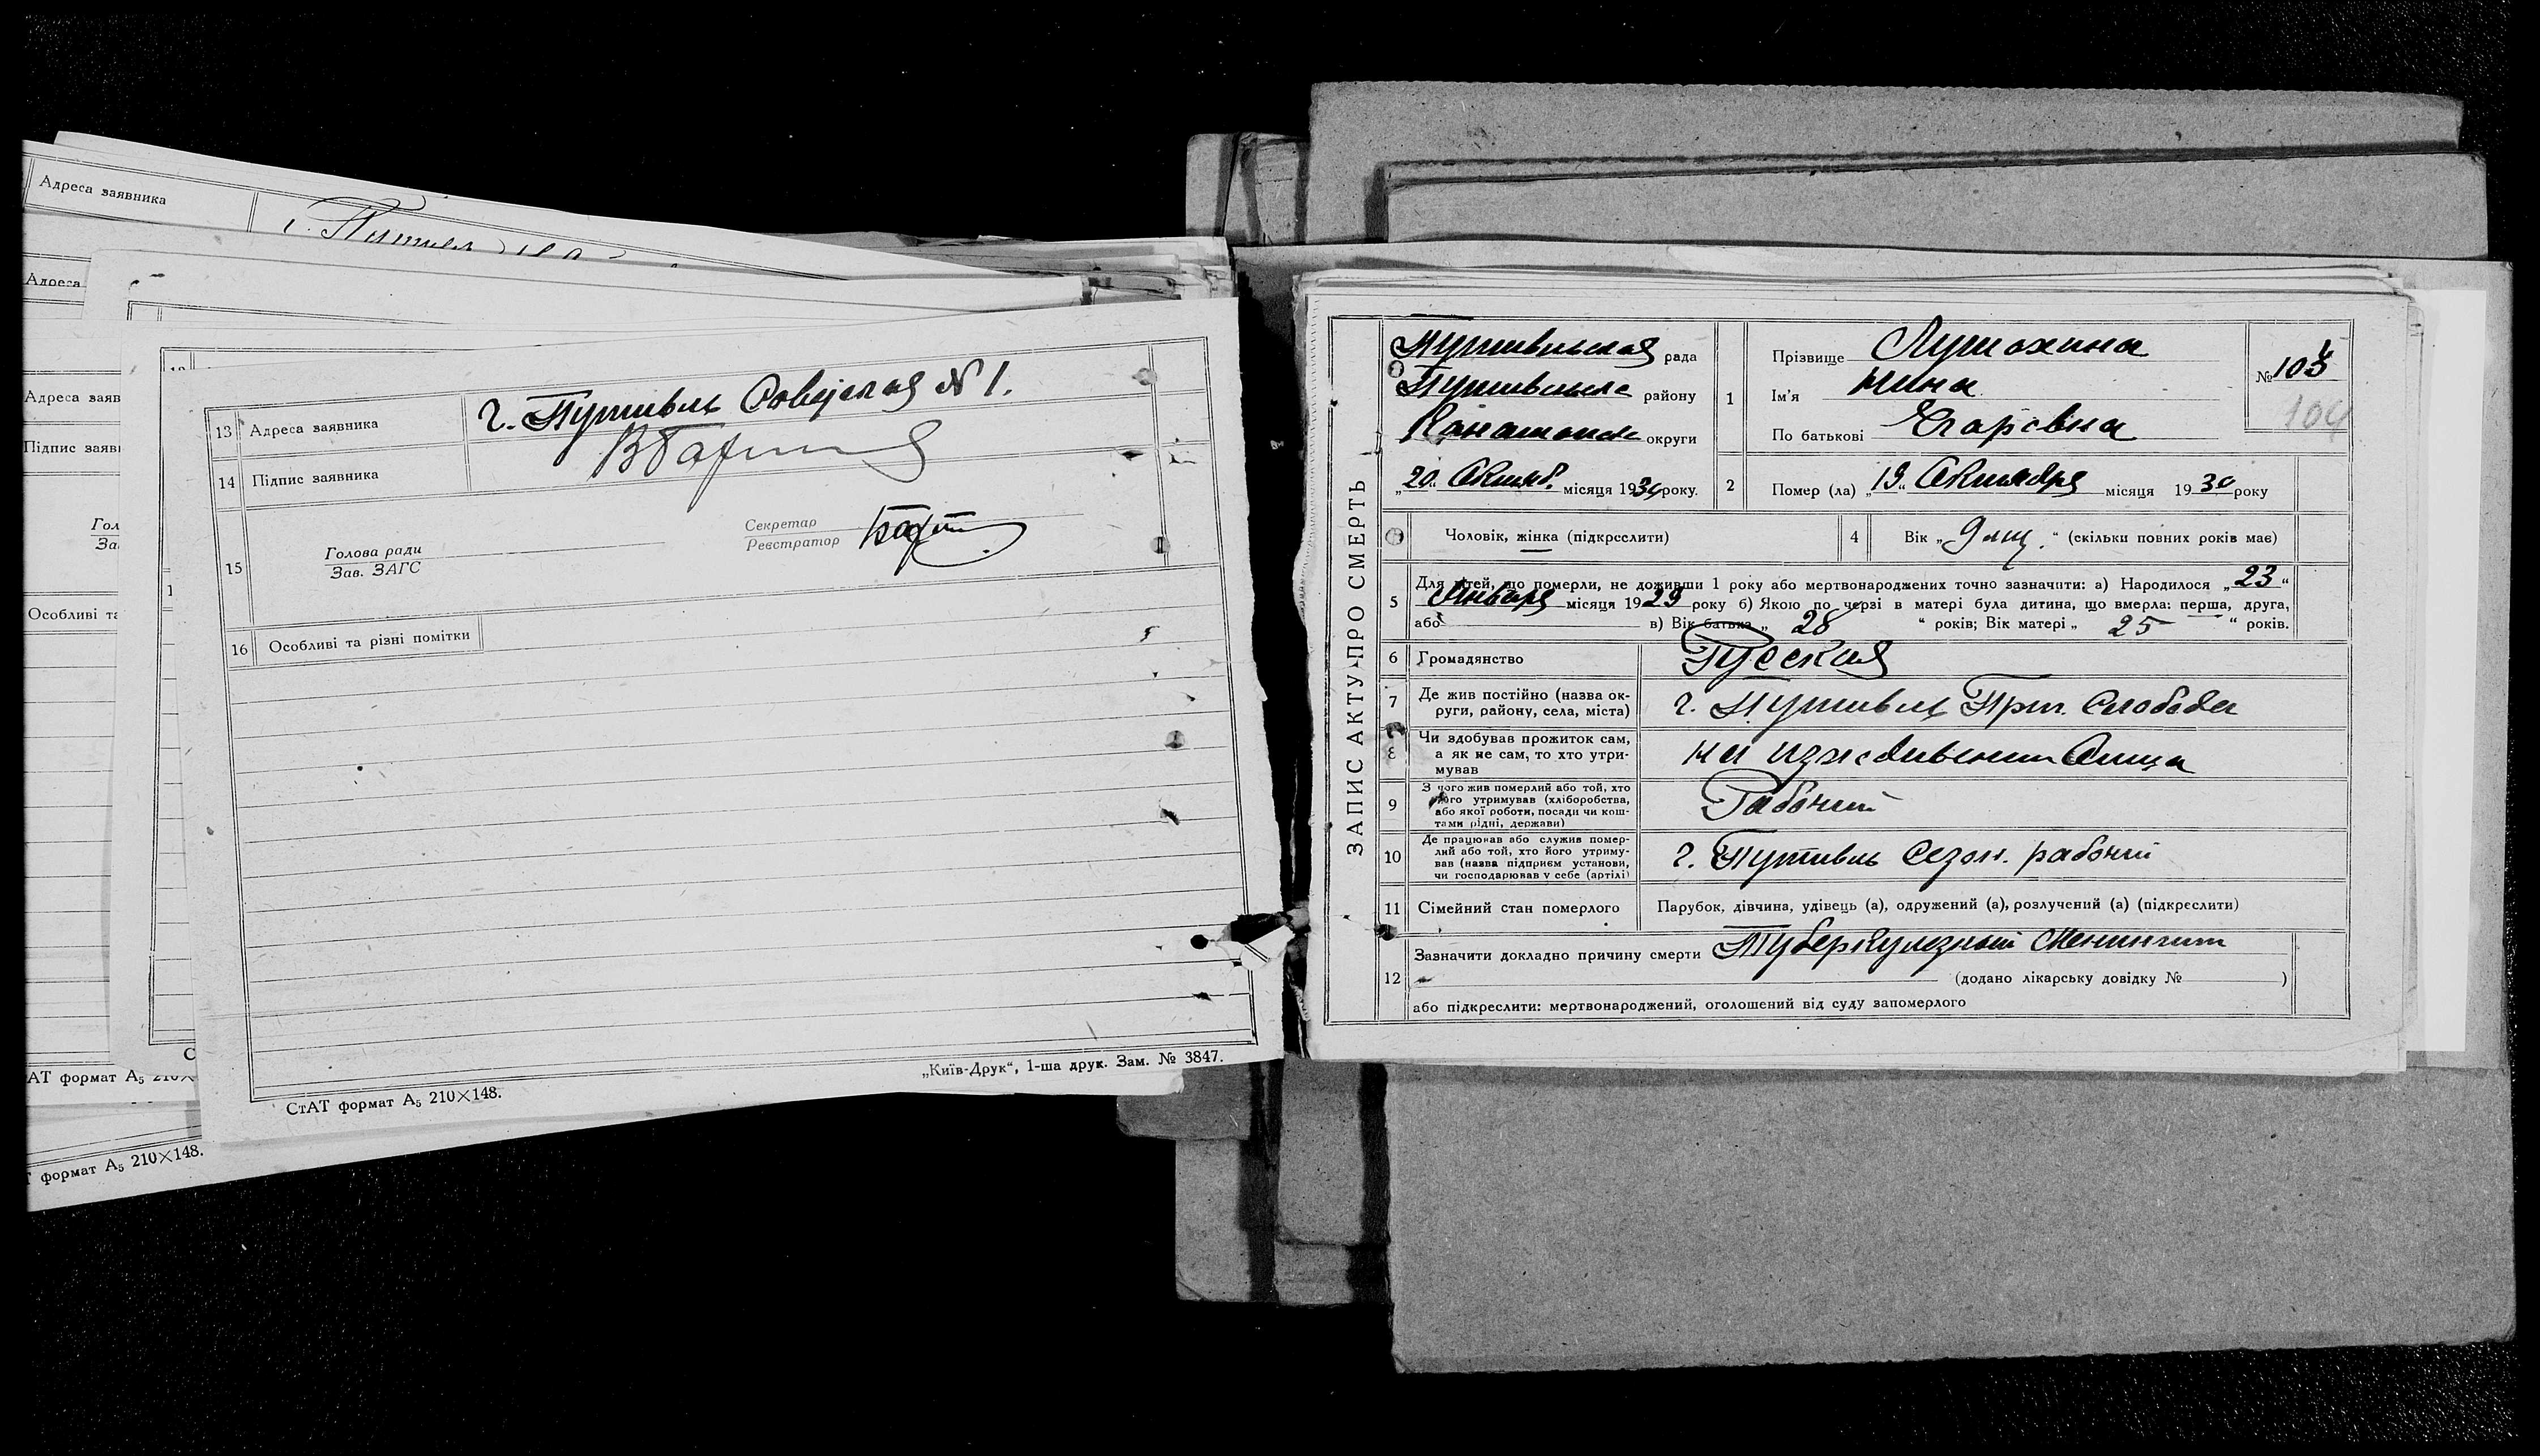 Адреса заявника
Адреса
Адреса заяв
Підпис заяв
Гол
За
Особливі та
АТ формат А₅ 210×
формат А₅ 210×148.
13 Адреса заявника г. Путивль Советская № 1.
14 Підпис заявника
15 Голова ради
Зав. ЗАГС
Секретар
Реєстратор
16 Особливі та різні помітки
СтАТ формат А₅ 210×148.
„Київ-Друк“, 1-ша друк. Зам. № 3847.
ЗАПИС АКТУ ПРО СМЕРТЬ
Путивльская рада
Путивльск району
Конотопск округи
„20“ Октяб. місяця 1930 року.
1 Прізвище Лутохина
Ім'я Нина
По батькові Егоровна
№ 103
104
2 Помер (ла) „19“ Октября місяця 1930 року
Чоловік, жінка (підкреслити)
4 Вік „ “ (скільки повних років має)
5 Для дітей, що померли, не доживши 1 року або мертвонароджених точно зазначити: а) Народилося „23“
Января місяця 1929 року б) Якою по черзі в матері була дитина, що вмерла: перша, друга,
або в) Вік батька „ 28 “ років; Вік матері „ 25 “ років.
6 Громадянство Русская
7 Де жив постійно (назва ок-
руги, району, села, міста) г. Путивль Слобода
8 Чи здобував прожиток сам,
а як не сам, то хто утри-
мував на иждивении Отца
9 З чого жив померлий або той, хто
його утримував (хліборобства,
або якої роботи, посади чи кош-
тами рідні, держави) Рабочий
10 Де працював або служив помер-
лий або той, хто його утриму-
вав (назва підприєм установи,
чи господарював у себе (артілі) г. Путивль Сезон. рабочий
11 Сімейний стан померлого Парубок, дівчина, удівець (а), одружений (а), розлучений (а) (підкреслити)
12 Зазначити докладно причину смерти Туберкулезный Менингит
(додано лікарську довідку № )
або підкреслити: мертвонароджений, оголошений від суду запомерлого